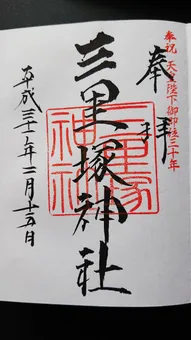 奉祝 天皇陛下御即位三十年
奉拝
三里塚神社
三里塚神社
平成三十一年二月十五日